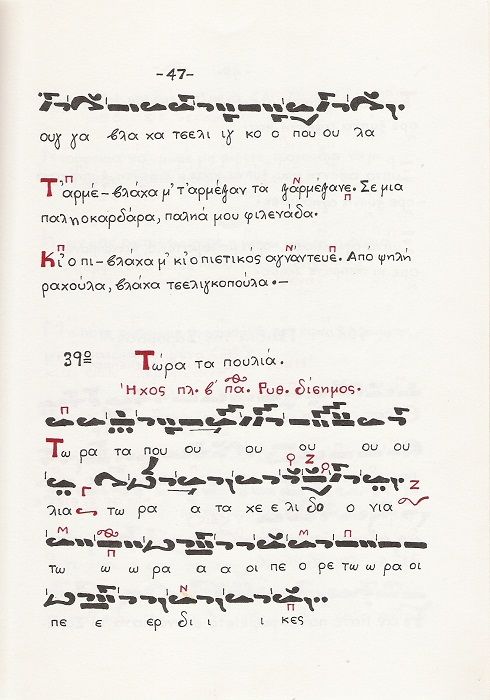 -47-
ουγ γα βλα χα τσελι ιγ κο ο που ου λα
Τ'αρμέ-βλάχα μ' τ'αρμέγαν τα γαρμέγανε. Σε μια
παληοκαρδάρα, παληά μου φιλενάδα.
Κι'ο πι-βλάχα μ' κι'ο πιστικος αγνάντευε. Από ψηλή
ραχούλα, βλάχα τσελιγκοπούλα.-
39º Τώρα τα πουλιά.
Ήχος πλ. β' πα. Ρυθ. δίσημος.
Τω ρα τα που ου ου ου ου ου
λια τω ρα α τα χε ε λι δο ο νια
τω ω ω ρα α α οι πε ο ρε τω ω ρα οι
πε ε ερ δι ι ι κες